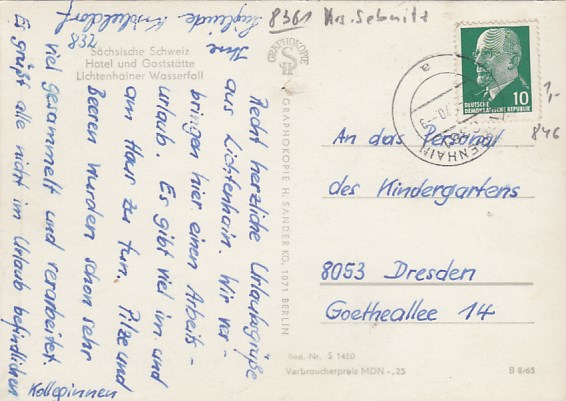 8361 Krs. Sebnitz
Sächsische Schweiz
Hotel und Gaststätte
Lichtenhainer Wasserfall
834
GRAPHOKOPIE
GRAPHOKOPIE H. SANDER KG, 1071 BERLIN
Recht herzliche Urlaubsgrüße
aus Lichtenhain. Wir ver-
bringen hier einen Arbeits-
urlaub. Es gibt viel im und
am Haus zu tun. Pilze und
Beeren wurden schon sehr
viel gesammelt und verarbeitet.
Es grüßt alle nicht im Urlaub befindlichen
Kolleginnen
Ihre
DEUTSCHE
DEMOKRATISCHE REPUBLIK
10
a
1,-
846
An das Personal
des Kindergartens
8053 Dresden
Goetheallee 14
Best. Nr. S 1450
Verbraucherpreis MDN -,25
B 8/65